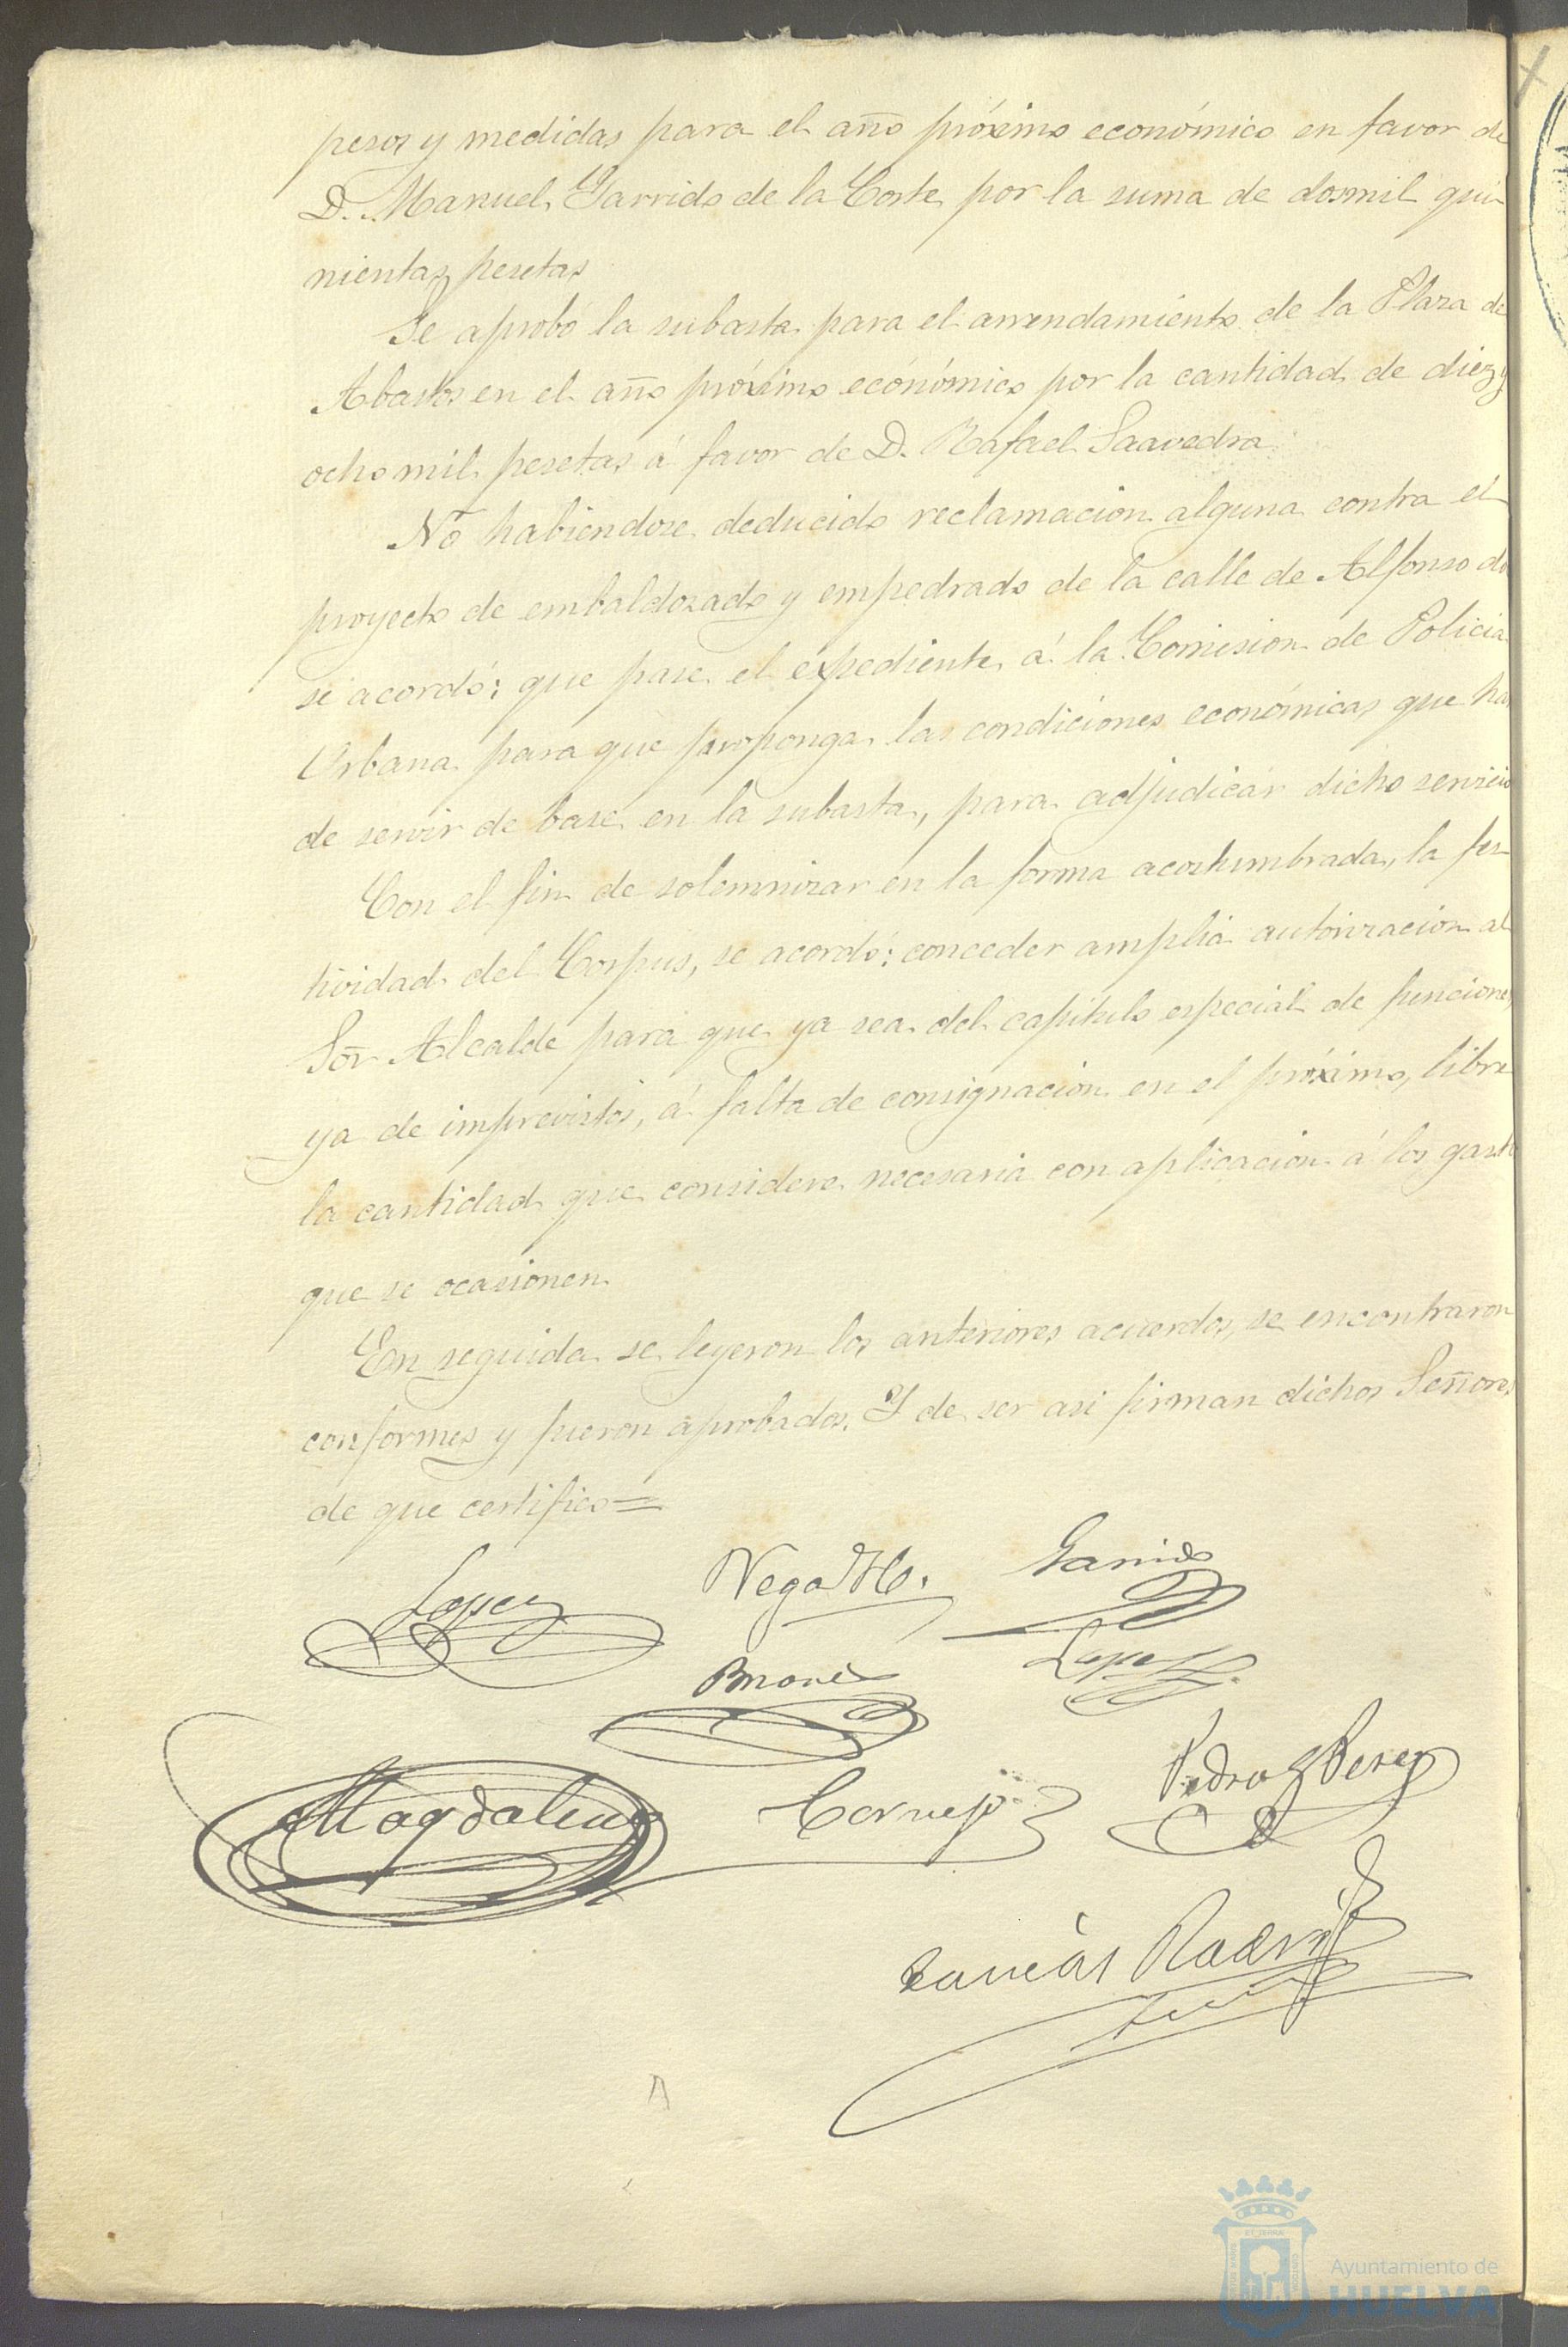 pesos y medidas para el año próximo económico en favor de
D. Manuel Garrido de la Corte por la suma de dosmil qui-
nientas pesetas
Se aprobó la subasta para el arrendamiento de la Plaza de
Abastos en el año próximo económico por la cantidad de diez y
ocho mil pesetas á favor de D. Rafael Saavedra
No habiendose deducido reclamacion alguna contra el
proyecto de embaldosado y empedrado de la calle de Alfonso do
se acordó: que pase el expediente á la Comision de Policia
Urbana para que proponga las condiciones económicas que han
de servir de base en la subasta, para adjudicar dicho servicio
Con el fin de solemnizar en la forma acostumbrada, la fes-
tividad del Corpus, se acordó: conceder amplia autorizacion al
Sor Alcalde para que ya sea del capitulo especial de funciones,
ya de imprevistos, á falta de consignacion en el próximo, libre
la cantidad que considere necesaria con aplicacion á los gastos
que se ocasionen.
En seguida se leyeron los anteriores acuerdos, se encontraron
conformes y fueron aprobados. Y de ser asi firman dichos Señores
de que certifico=
Lopez
Vega
Garrido
Briones
Lopez
Magdalena
Cornejo
Pedro Perez
Rodri
Ayuntamiento de
HUELVA